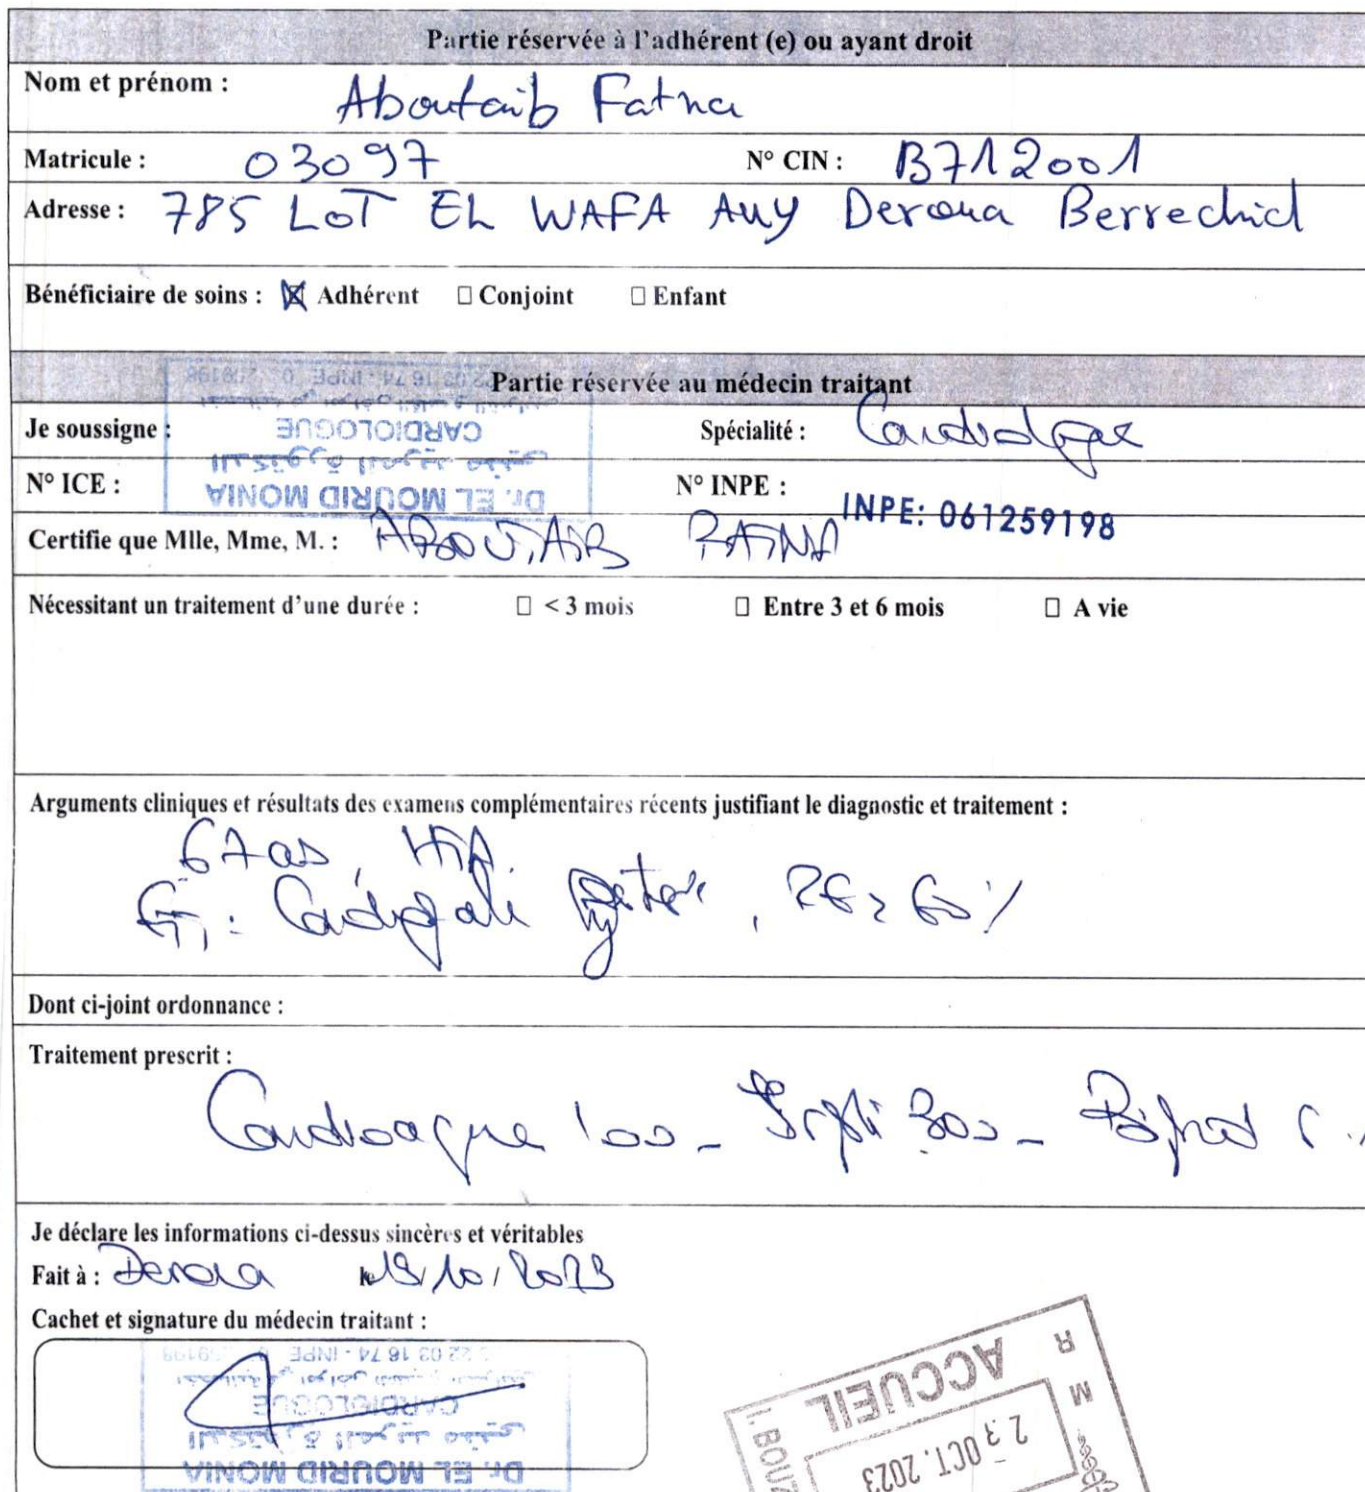 Partie réservée à l'adhérent (e) ou ayant droit
Nom et prénom : Aboutaib Fatna
Matricule : 03097 N° CIN : B712001
Adresse : 785 LOT EL WAFA Deroua Berrechid
Bénéficiaire de soins : ☒ Adhérent ☐ Conjoint ☐ Enfant
Partie réservée au médecin traitant
Je soussigne : Spécialité : Cardiologue
CARDIOLOGUE
N° ICE : N° INPE : INPE: 061259198
Dr. EL MOURID MONIA
Certifie que Mlle, Mme, M. : ABOUTAIB FATNA
Nécessitant un traitement d'une durée : ☐ < 3 mois ☐ Entre 3 et 6 mois ☐ A vie
Arguments cliniques et résultats des examens complémentaires récents justifiant le diagnostic et traitement :
67 ans, HTA
60 %
Dont ci-joint ordonnance :
Traitement prescrit :
100 - 300 -
Je déclare les informations ci-dessus sincères et véritables
Fait à : Deroua le 19/10/2023
Cachet et signature du médecin traitant :
22 03 16 74 - INPE
CARDIOLOGUE
Dr. EL MOURID MONIA
ACCUEIL
OCT. 2023